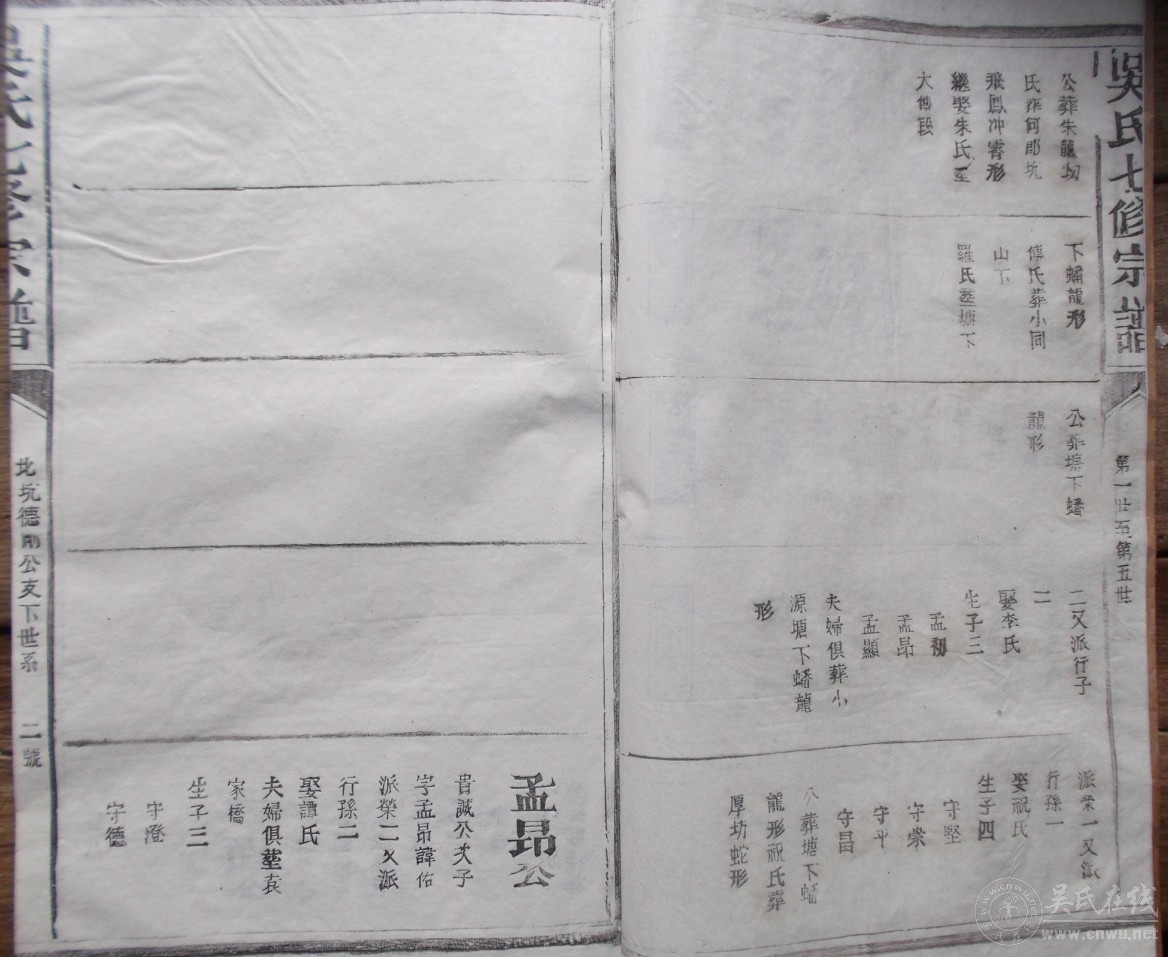 吳氏七修宗譜
第一世至第五世
公葬朱龍坳
氏葬何郎坑
飛鳳冲霄形
繼娶朱氏葬
大傅段
下蟠龍形
傅氏葬小同
山下
羅氏葬塘下
公葬塘下蟠
龍形
二又派行子
二
娶李氏
生子三
孟初
孟昂
孟顯
夫婦俱葬小
源塘下蟠龍
形
派榮一又派
行孫一
娶祝氏
生子四
守堅
守崇
守平
守昌
公葬塘下蟠
龍形祝氏葬
厚坊蛇形
孟昂公
貴誠公次子
字孟昂諱佑
派榮二又派
行孫二
娶譚氏
夫婦俱塟袁
家橋
生子三
守澄
守德
吳氏七修宗譜
北坑德剛公支下世系
二號
吴氏在线
www.cnwu.net